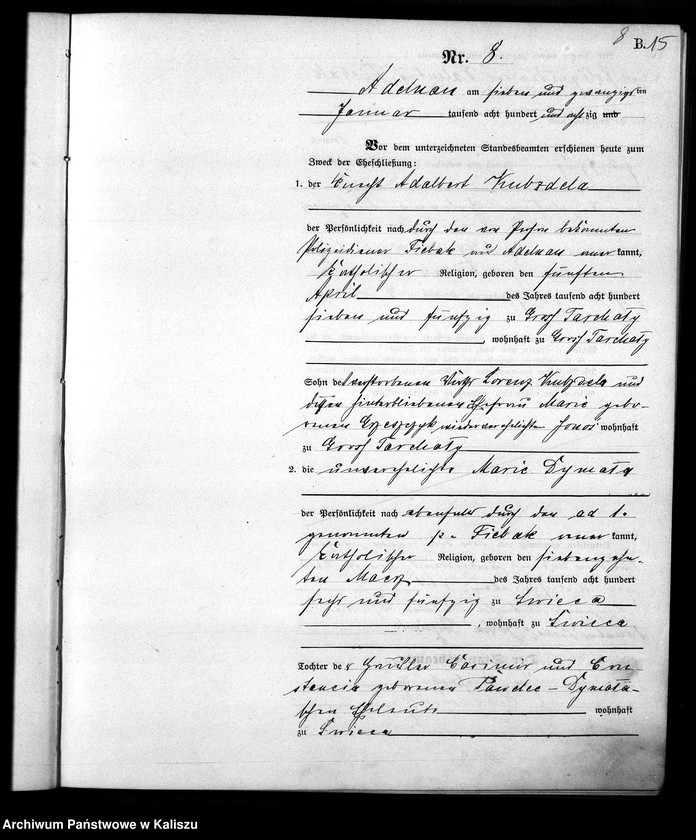 8 B. 15
Nr. 8.
Adelnau am sieben und zwanzigsten
Januar tausend acht hundert und achtzig und
Vor dem unterzeichneten Standesbeamten erschienen heute zum
Zweck der Eheschließung:
1. der Knecht Adalbert Kubzdela
der Persönlichkeit nach durch den von Person bekannten
Polizeidiener Fiebak aus Adelnau anerkannt,
katholischer Religion, geboren den fünften
April des Jahres tausend acht hundert
sieben und fünfzig zu Groß Tarchaly
, wohnhaft zu Groß Tarchaly
Sohn des verstorbenen Wirths Lorenz Kubzdela und
dessen hinterbliebenen Ehefrau Marie gebo-
renen wiederverehelichten Janos wohnhaft
zu Groß Tarchaly
2. die unverehelichte Marie Dymala
der Persönlichkeit nach ebenfalls durch den ad 1.
genannten p. Fiebak anerkannt,
katholischer Religion, geboren den siebenzehn-
ten Maerz des Jahres tausend acht hundert
sechs und fünfzig zu Swieca
, wohnhaft zu Swieca
Tochter der Häusler Casimir und Con-
stancia geborenen Pawelec - Dymala-
schen Eheleute wohnhaft
zu Swieca
Archiwum Państwowe w Kaliszu